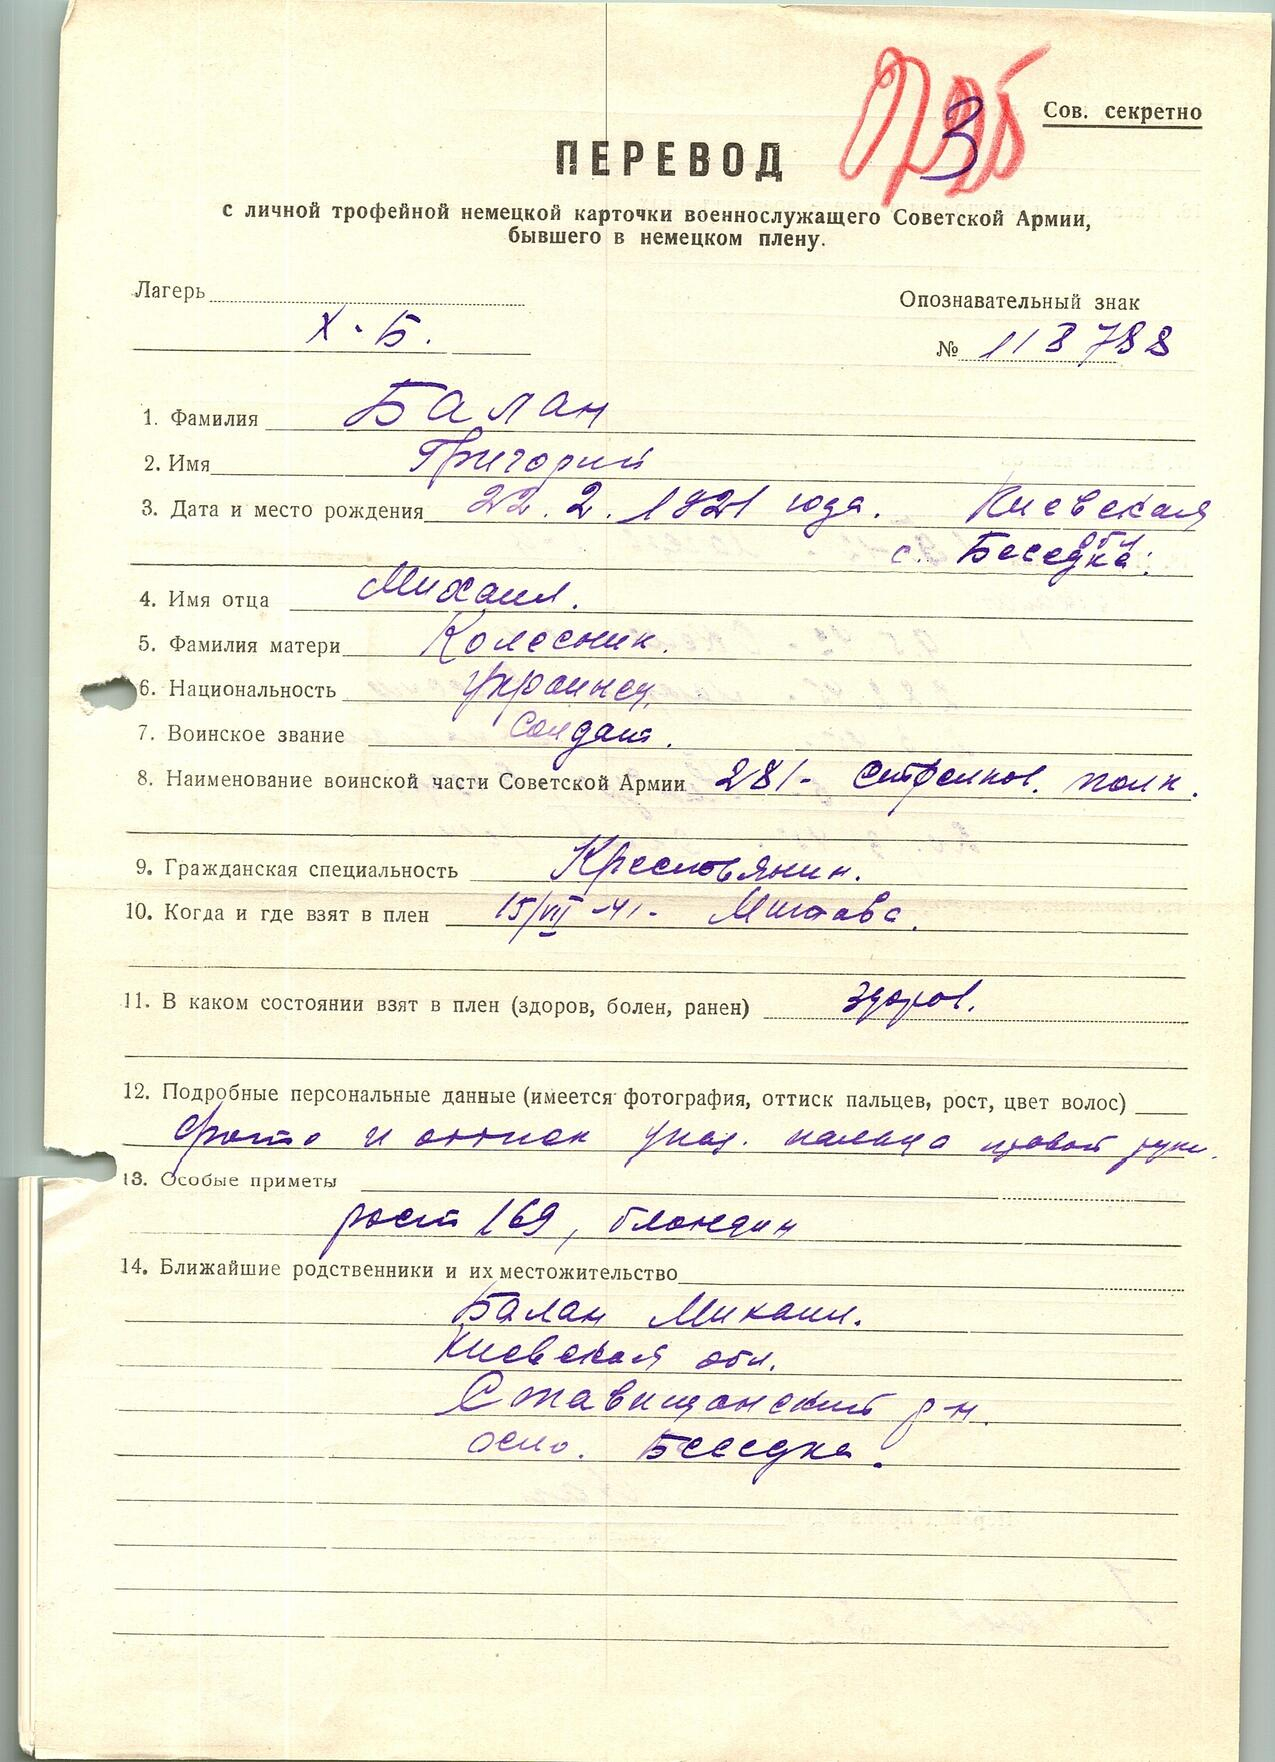 3
Сов. секретно
ПЕРЕВОД
с личной трофейной немецкой карточки военнослужащего Советской Армии,
бывшего в немецком плену.
Лагерь
Х-Б.
Опознавательный знак
№ 118788
1. Фамилия Балан
2. Имя Григорий
3. Дата и место рождения 22.2.1921 года. Киевская
обл
с. Беседка.
4. Имя отца Михаил.
5. Фамилия матери Колесник.
6. Национальность украинец.
7. Воинское звание Солдат.
8. Наименование воинской части Советской Армии 281- стрелков. полк.
9. Гражданская специальность Крестьянин.
10. Когда и где взят в плен 15/VII -41- Митава.
11. В каком состоянии взят в плен (здоров, болен, ранен) здоров.
12. Подробные персональные данные (имеется фотография, оттиск пальцев, рост, цвет волос)
фото и оттиск указ. пальца правой руки.
13. Особые приметы
рост 169, блондин
14. Ближайшие родственники и их местожительство
Балан Михаил.
Киевская обл.
Ставищанский р-н.
Беседка.